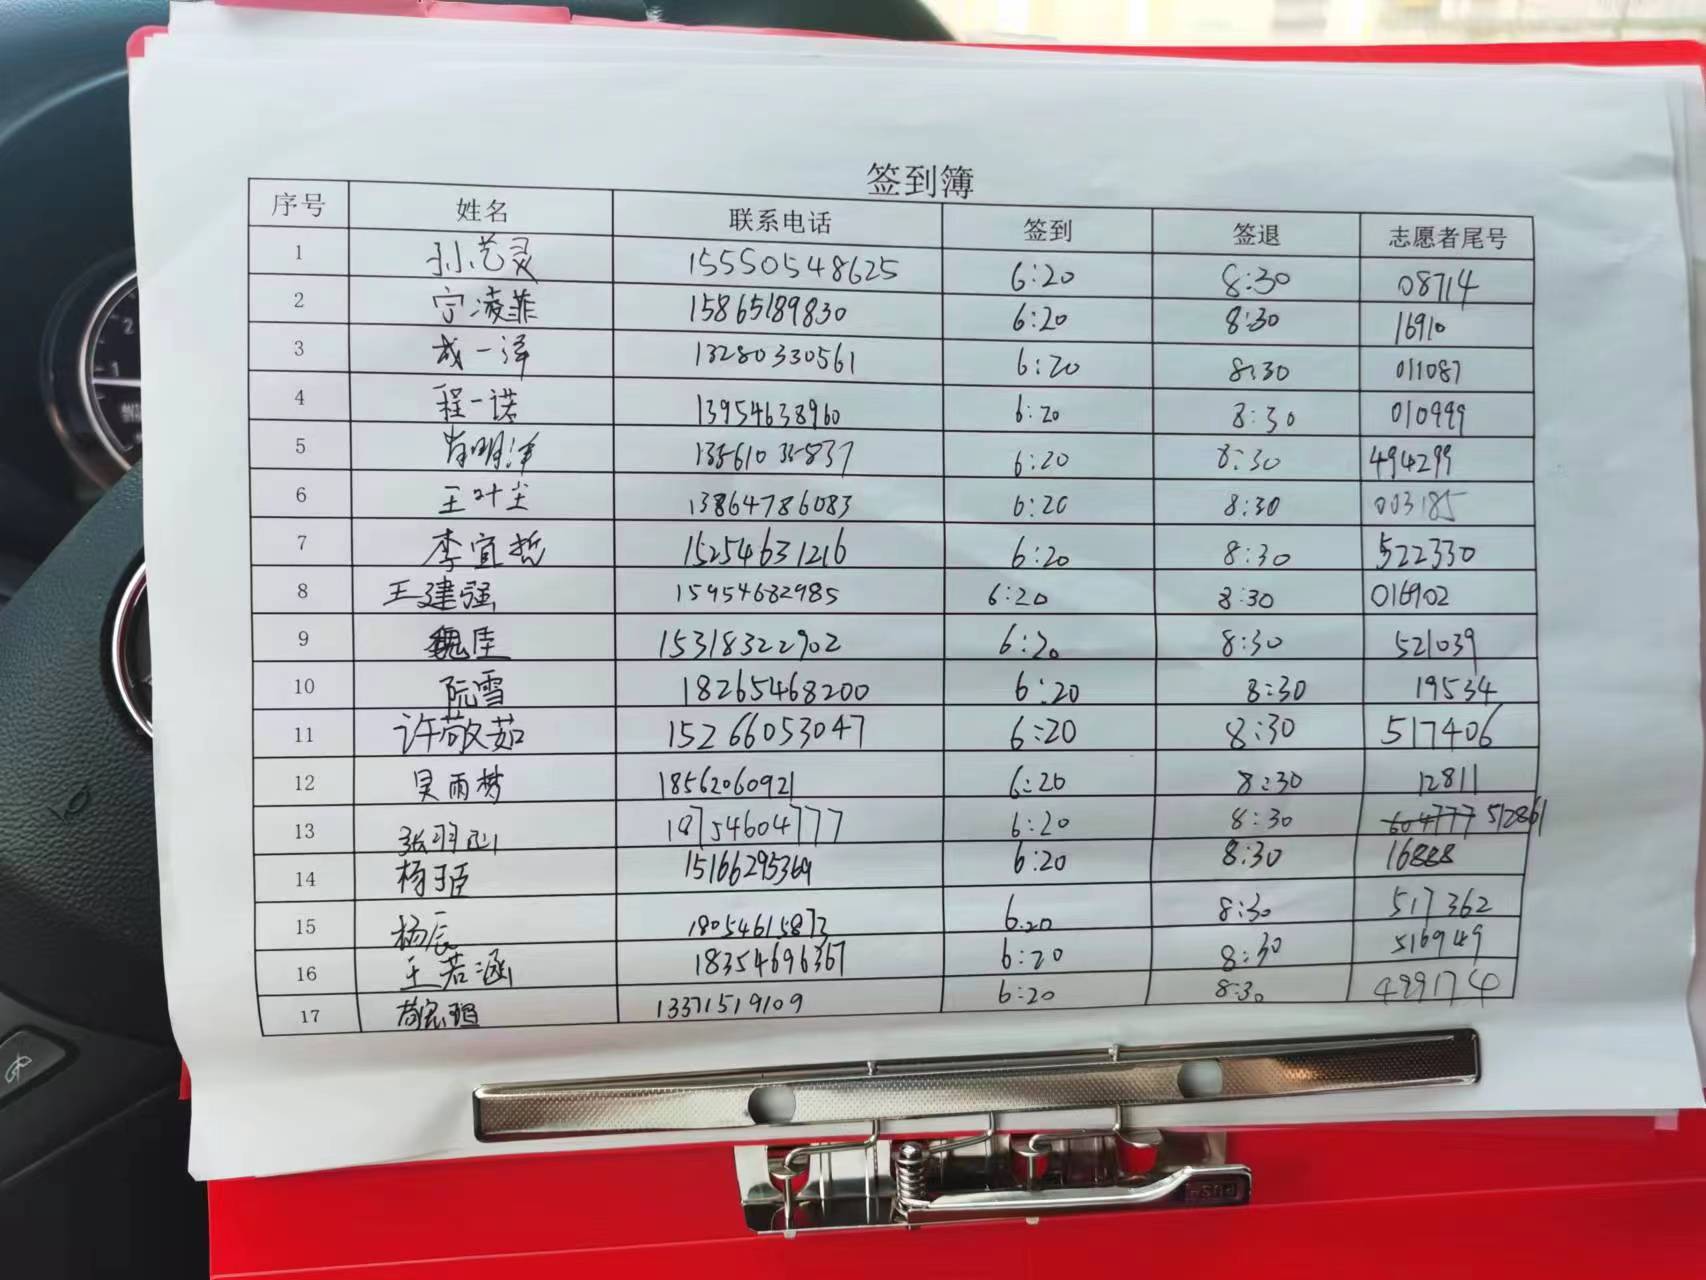 签到簿
序号 姓名 联系电话 签到 签退 志愿者尾号
1 孙艺灵 15550548625 6:20 8:30 08714
2 宁凌菲 15865189830 6:20 8:30 16910
3 成一泽 13280330561 6:20 8:30 011087
4 程一诺 13954638960 6:20 8:30 010999
5 肖明泽 6:20 8:30 494299
6 王叶尘 13864786083 6:20 8:30 003185
7 李宜哲 15254631216 6:20 8:30 522330
8 王建强 15954682985 6:20 8:30 016902
9 魏佳 15318322902 6:20 8:30 521039
10 阮雪 18265468200 6:20 8:30 19534
11 许敬茹 15266053047 6:20 8:30 517406
12 吴雨梦 18562060921 6:20 8:30 12811
13 18754604777 6:20 8:30 604777 512861
14 杨于臣 15166295369 6:20 8:30 16888
15 杨辰 18054615873 6:20 8:30 517362
16 王若涵 18354696367 6:20 8:30 516949
17 13371519109 6:20 8:30 499174